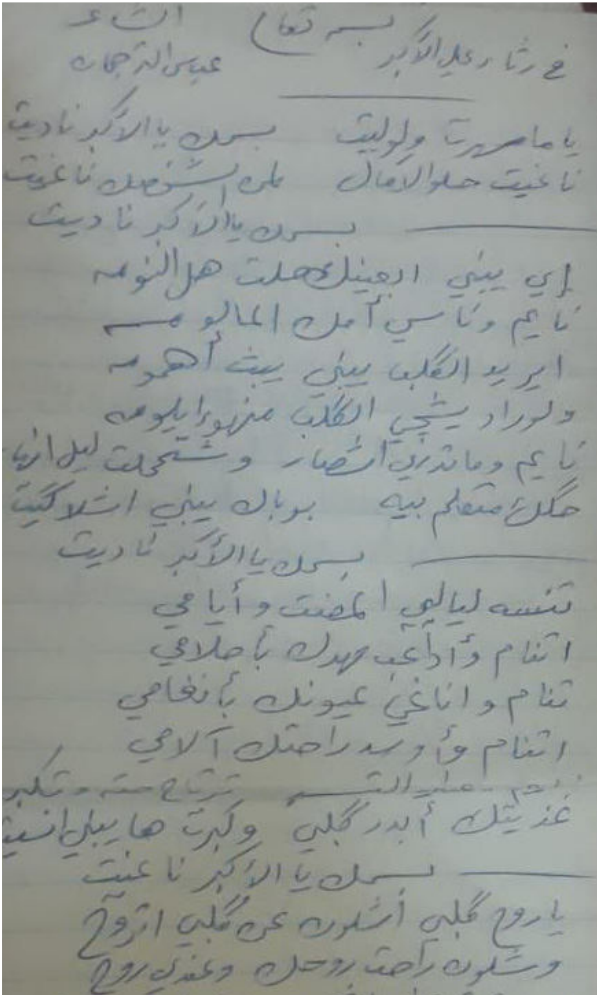 بسمه تعالى الشاعر
في رثاء علي الأكبر عباس الترجمان
ياما سهرت ولوليت بسمك يا الأكبر ناديت
ناغيت حلو الآمال من ناغيت
بسمك يا الأكبر ناديت
إي يبني ابعينك حلت هل النومه
نايم وناسي أمك المالومه
ايريد الگلب يبني يبث أهمومه
ولوراد يشچي الگلب منهو ايلومه
نايم وماتدري اشصار وشتحملت ليل انهار
حگك متعلم بيه بوياك يبني اشلاگيت
بسمك يا الأكبر ناديت
تنسه ليالي المضنت وأيامي
اتنام وأداعب مهدك بأحلامي
تنام واناغي عيونك بأنغامي
اتنام وأوسد راحتك آلامي
ترتاح وتكبر
غذيتك أبدر گلبي وكبرت هايبني انسيت
بسمك يا الأكبر ناغيت
ياروح گلبي أشلون عن گلبي اتروح
وشلون راحت روحك وعندي روح